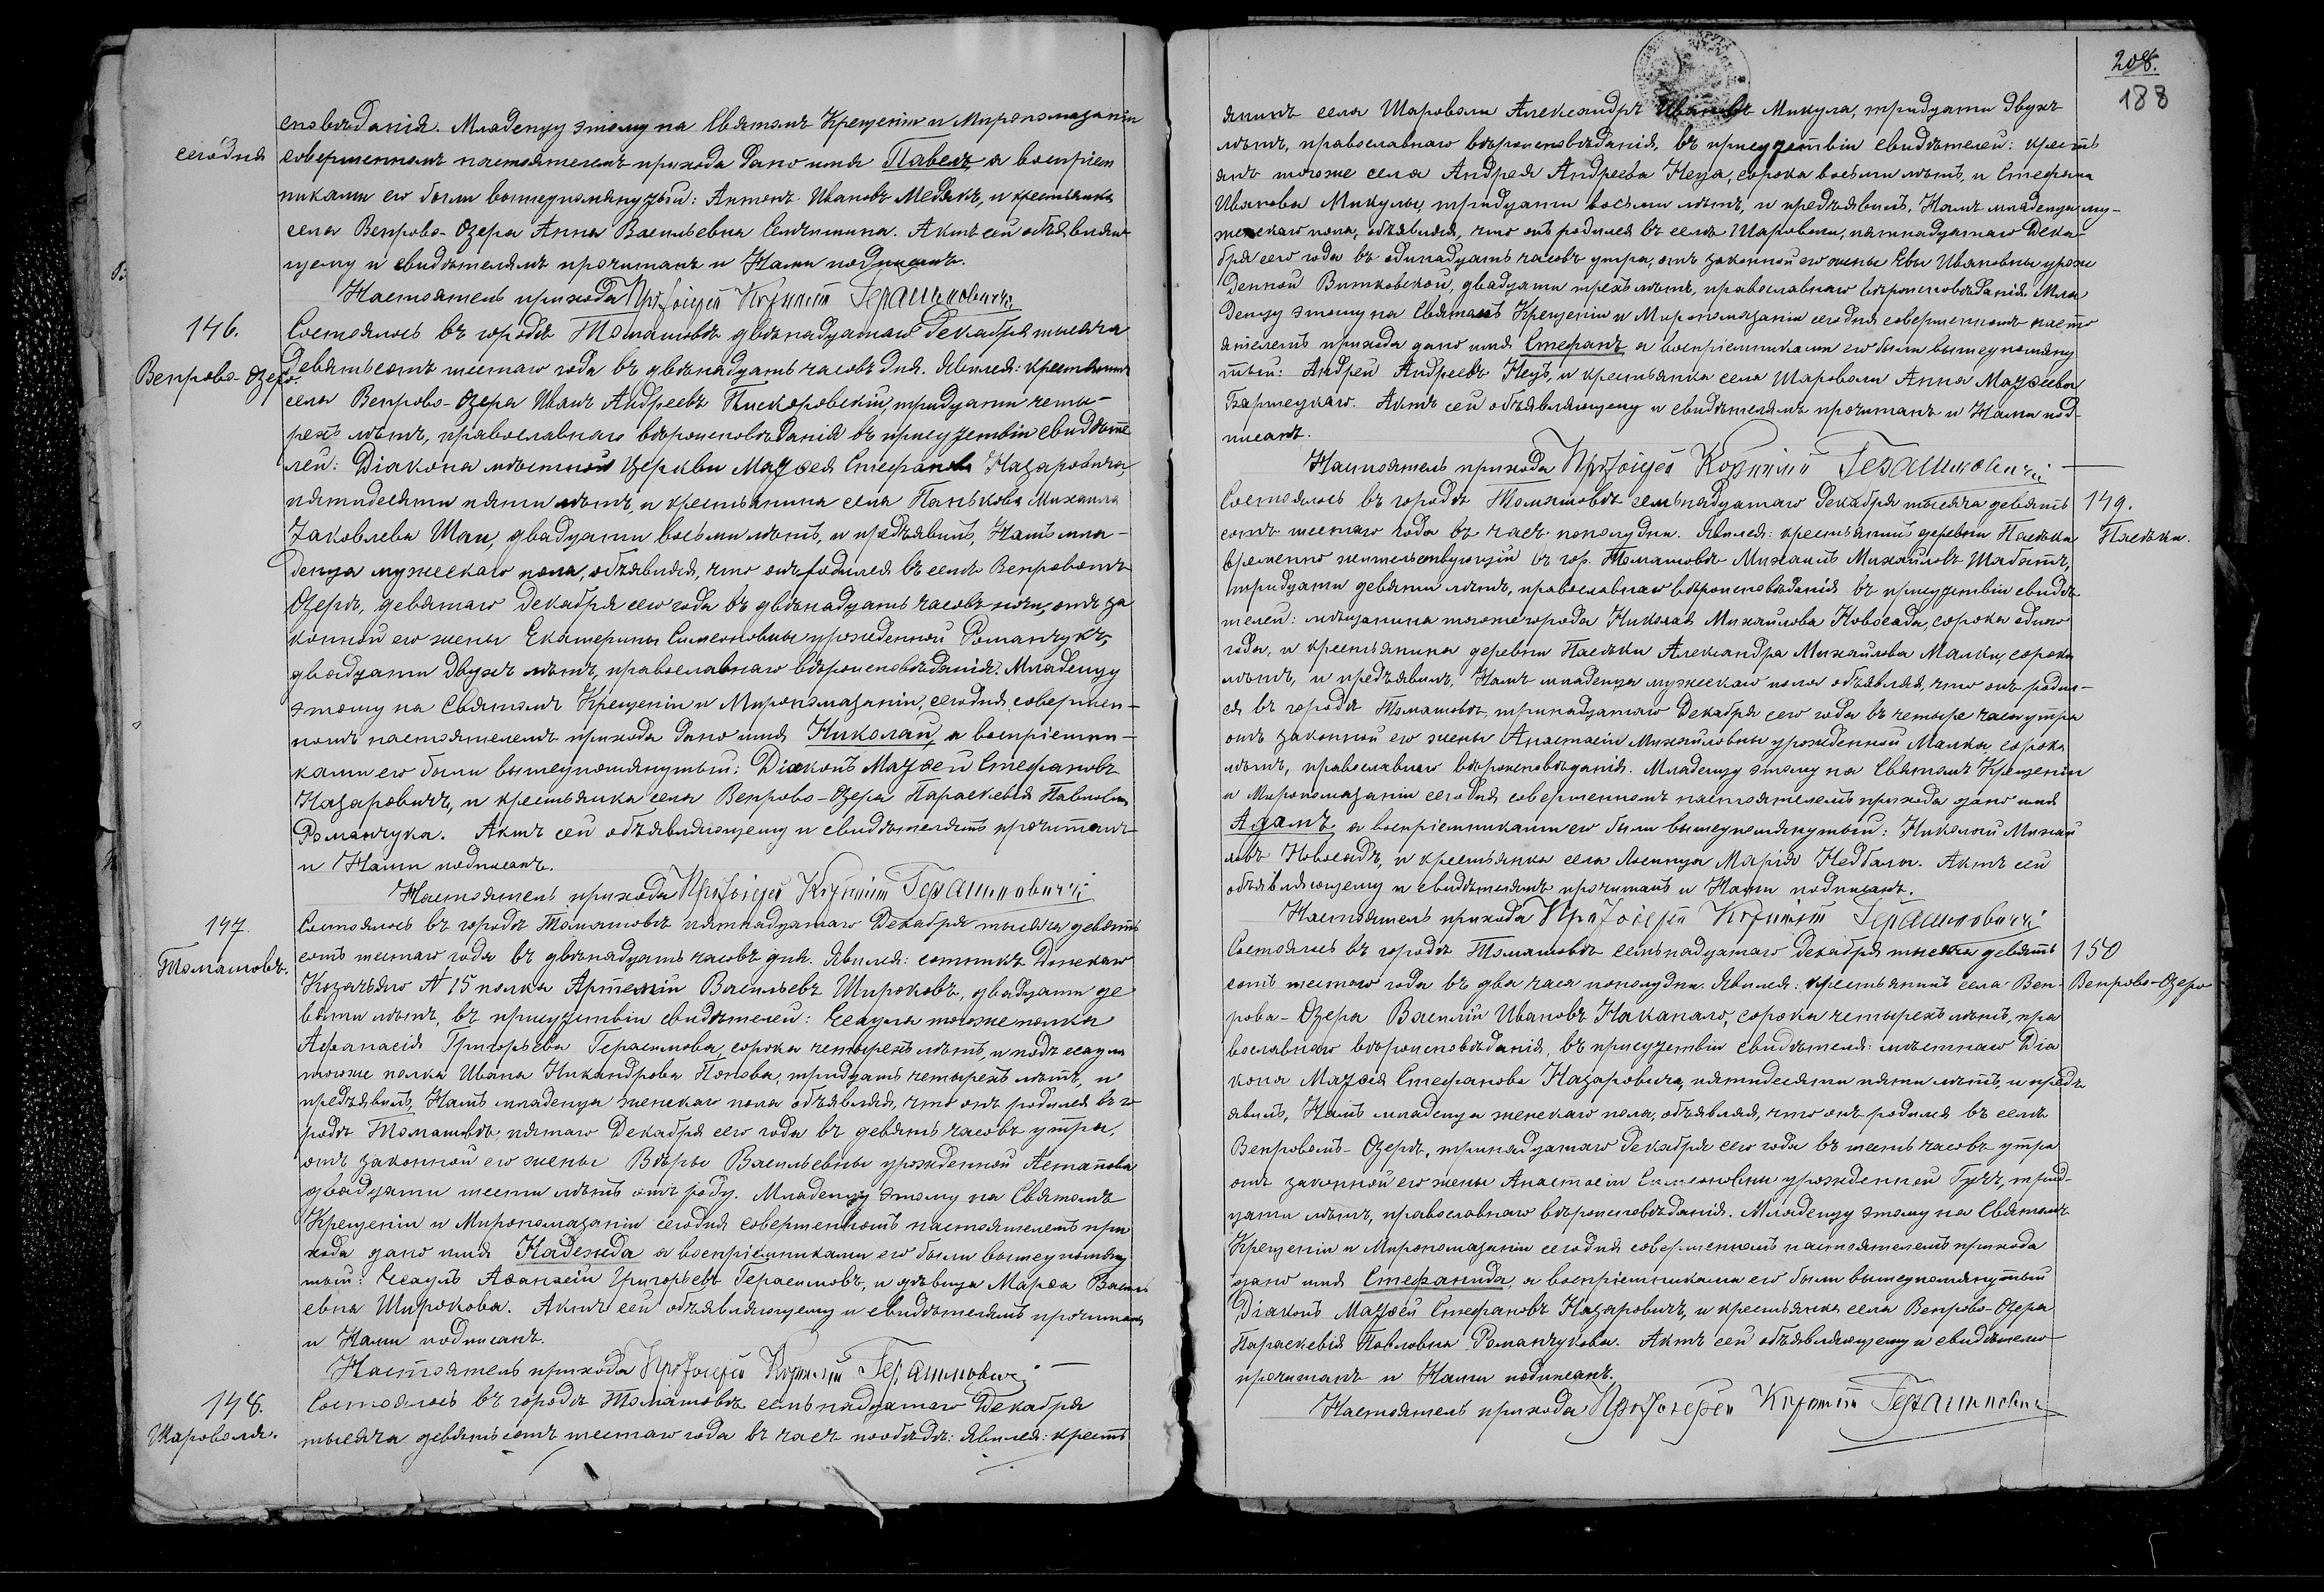 сповѣданія. Младенцу этому на Святомъ Крещеніи и Мѵропомазаніи
сегодня
совершенномъ настоятелемъ прихода дано имя Павелъ, а воспріем
никами его были вышеупомянутый: Антонъ Ивановъ Медякъ, и крестьянка
села Вепрово-Озера Анна Васильевна. Актъ сей объявляю
щему и свидѣтелямъ прочитанъ и Нами подписанъ.
Настоятель прихода Протоіерей Корнилій Герашиновичъ
146.
Вепрово-Озеро.
Состоялось въ городѣ Томашовѣ двѣнадцатаго Декабря тысяча
девятьсотъ шестаго года въ двѣнадцать часовъ дня. Явился: крестьянинъ
села Вепрово-Озера Иванъ Андреевъ Пискоровскій, тридцати четы-
рехъ лѣтъ, православнаго вѣроисповѣданія въ присутствіи свидѣте
лей: Діакона мѣстной Церкви Матѳея Стефанова Назаровича,
пятидесяти пяти лѣтъ, и крестьянина села Панькова Михаила
Яковлева Шац, двадцати восьми лѣтъ, и предъявилъ, Намъ мла-
денца мужескаго пола, объявляя, что онъ родился въ селѣ Вепровомъ-
Озерѣ, девятаго Декабря сего года въ двѣнадцать часовъ ночи, отъ за
конной его жены Екатерины Симеоновны урожденной Романчукъ,
двадцати двухъ лѣтъ, православнаго вѣроисповѣданія. Младенцу
этому на Святомъ Крещеніи и Мѵропомазаніи, сегодня совершен-
номъ настоятелемъ прихода дано имя Николай, а воспріемни-
ками его были вышеупомянутый: Діаконъ Матѳей Стефановъ
Назаровичъ, и крестьянка села Вепрово-Озера Параскевія Павловна
Романчука. Актъ сей объявляющему и свидѣтелямъ прочитанъ
и Нами подписанъ.
Настоятель прихода Протоіерей Корнилій Герашиновичъ
147.
Томашовъ.
Состоялось въ городѣ Томашовѣ пятнадцатаго Декабря тысяча девять
сотъ шестаго года въ двѣнадцать часовъ дня. Явился: сотникъ Донскаго
Козачьяго № 15 полка Артемій Васильевъ Широковъ, двадцати де
вяти лѣтъ, въ присутствіи свидѣтелей: Есаула тогоже полка
Аѳанасія Григорьева Герасимова, сорока четырехъ лѣтъ, и подъ есаула
тогоже полка Ивана Никандрова Попова, тридцать четырехъ лѣтъ, и
предъявилъ, Намъ младенца женскаго пола объявляя, что онъ родился въ го
родѣ Томашовѣ, пятаго Декабря сего года въ девять часовъ утра,
отъ законной его жены Вѣры Васильевны урожденной Астапова
двадцати шести лѣтъ отъ роду. Младенцу этому на Святомъ
Крещеніи и Мѵропомазаніи сегодня совершенномъ настоятелемъ при
хода дано имя Надежда а воспріемниками его были вышеупомяну
тый: Есаулъ Аѳанасій Григорьевъ Герасимовъ, и дѣвица Марѳа Василь
евна Широкова. Актъ сей объявляющему и свидѣтелямъ прочитанъ
и Нами подписанъ.
Настоятель прихода Протоіерей Корнилій Герашиновичъ
148.
Шароволя.
Состоялось въ городѣ Томашовѣ семьнадцатаго Декабря
тысяча девятьсотъ шестаго года въ часъ пообѣдѣ: Явился: кресть
208.
188
янинъ села Шароволи Александръ Ивановъ Микула, тридцати двухъ
лѣтъ, православнаго вѣроисповѣданія, въ присутствіи свидѣтелей: кресть
янъ тогоже села Андрея Андреева Неца, сорока восьми лѣтъ, и Стефана
Иванова Микулы, тридцати восьми лѣтъ, и предъявилъ, Намъ младенца му-
жескаго пола, объявляя, что онъ родился въ селѣ Шароволи, пятнадцатаго Дека-
бря сего года въ одинадцать часовъ утра, отъ законной его жены Евы Ивановны урож
денной Витковской, двадцати трехъ лѣтъ, православнаго вѣроисповѣданія. Мла
денцу этому на Святомъ Крещеніи и Мѵропомазаніи сегодня совершенномъ насто
ятелемъ прихода дано имя Стефанъ, а воспріемниками его были вышеупомяну
тый: Андрей Андреевъ Нецъ, и крестьянка села Шароволи Анна Матѳеева
Актъ сей объявляющему и свидѣтелямъ прочитанъ и Нами под-
писанъ.
Настоятель прихода Протоіерей Корнилій Герашиновичъ
149.
Пасѣки.
Состоялось въ городѣ Томашовѣ семьнадцатаго Декабря тысяча девять
сотъ шестаго года въ часъ пополудни. Явился: крестьянинъ деревни Пасѣки
временно жительствующій въ гор. Томашовѣ Михаилъ Михайловъ Шабатъ,
тридцати девяти лѣтъ, православнаго вѣроисповѣданія въ присутствіи свидѣ
телей: мѣщанина тогоже города Николая Михайлова Новосада, сорока одного
года, и крестьянина деревни Пасѣки Александра Михайлова Малки, сорока
лѣтъ, и предъявилъ, Намъ младенца мужескаго пола объявляя, что онъ родил-
ся въ городѣ Томашовѣ, тринадцатаго Декабря сего года въ четыре часа утра
отъ законной его жены Анастасіи Михайловны урожденной Малки, сорока
лѣтъ, православнаго вѣроисповѣданія. Младенцу этому на Святомъ Крещеніи
и Мѵропомазаніи сегодня совершенномъ настоятелемъ прихода дано имя
Адамъ, а воспріемниками его были вышеупомянутый: Николай Михай
ловъ Новосадъ, и крестьянка села Лосинца Марія Недбала. Актъ сей
объявляющему и свидѣтелямъ прочитанъ и Нами подписанъ.
Настоятель прихода Протоіерей Корнилій Герашиновичъ
150
Вепрово-Озеро
Состоялось въ городѣ Томашовѣ семьнадцатаго Декабря тысяча девять
сотъ шестаго года въ два часа пополудни. Явился: крестьянинъ села Веп-
рова-Озера Василій Ивановъ Наканало, сорока четырехъ лѣтъ, пра
вославнаго вѣроисповѣданія, въ присутствіи свидѣтеля: мѣстнаго Діа
кона Матѳея Стефанова Назаровича, пятидесяти пяти лѣтъ, и предъ
явилъ, Намъ младенца женскаго пола, объявляя, что онъ родился въ селѣ
Вепровомъ-Озерѣ, тринадцатаго Декабря сего года въ шесть часовъ утра
отъ законной его жены Анастасіи Симеоновны урожденной Гуцъ, трид-
цати лѣтъ, православнаго вѣроисповѣданія. Младенцу этому на Святомъ
Крещеніи и Мѵропомазаніи сегодня совершенномъ настоятелемъ прихода
дано имя Стефанида, а воспріемниками его были вышеупомянутый
Діаконъ Матѳей Стефановъ Назаровичъ, и крестьянка села Вепрово-Озера
Параскевія Павловна Романчукова. Актъ сей объявляющему и свидѣтелю
прочитанъ и Нами подписанъ.
Настоятель прихода Протоіерей Корнилій Герашиновичъ